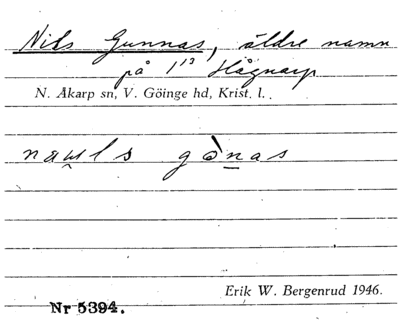 Nils Gunnas, äldre namn
på 1¹³ Hågnarp
N. Åkarp sn, V. Göinge hd, Krist. l.
nauls gònas
Erik W. Bergenrud 1946.
Nr 5394.